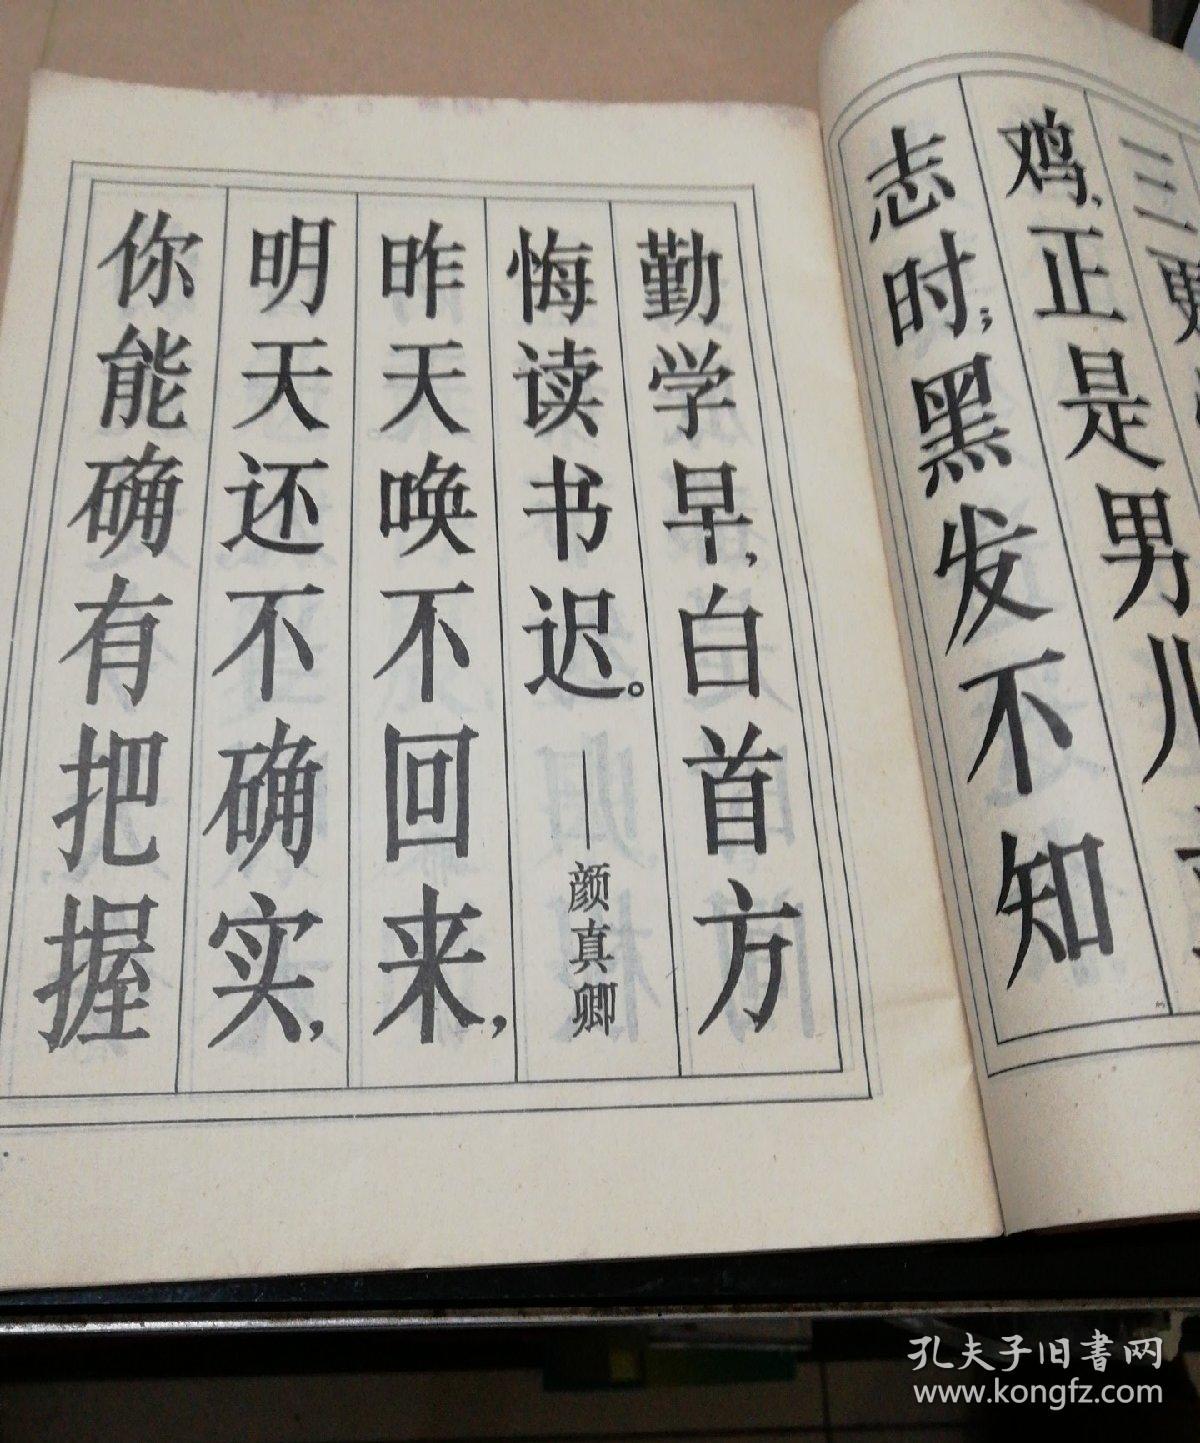 鸡,正是男儿
志时;黑发不知
勤学早,白首方
悔读书迟。——颜真卿
昨天唤不回来,
明天还不确实,
你能确有把握
孔夫子旧書网
www.kongfz.com